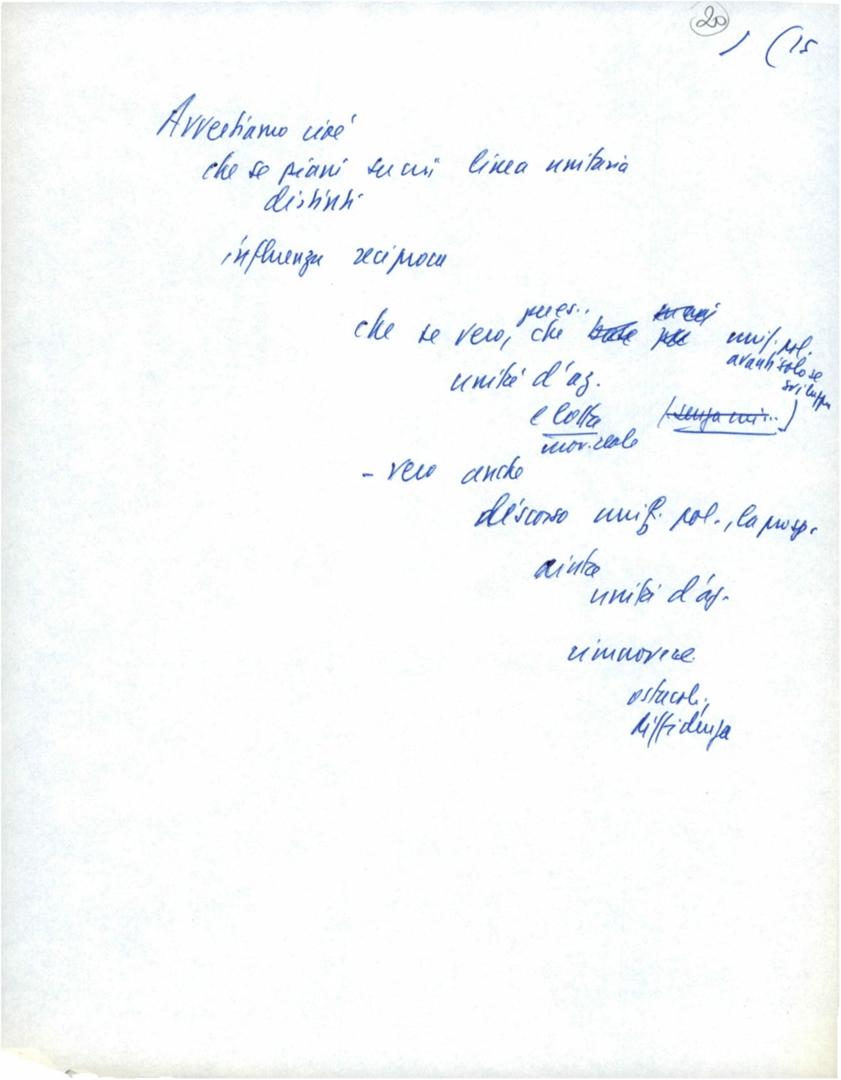 20
) (15
Avvertiamo cioè
che se piani su cui linea unitaria
distinti
influenza reciproca
che se vero, che unif. pol.
avanti solo se
sviluppa
unità d'az.
e lotta (senza cui..)
mov. reale
- vero anche
discorso unif. pol., la prosp.
aiuta
unità d'az.
rimuovere
ostacoli,
diffidenza